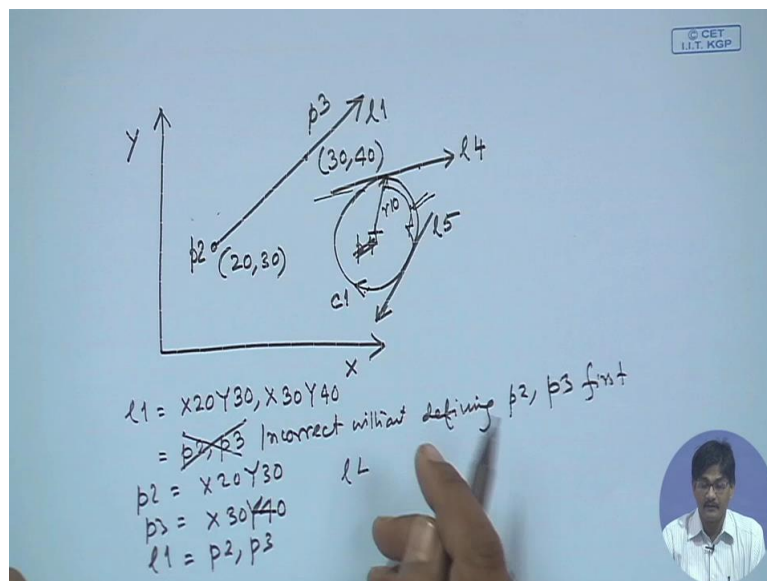 © CET
I.I.T. KGP
Y
p3
l1
(30,40)
l4
r10
l5
p2
(20,30)
c1
X
l1 = X20Y30, X30Y40
= p2, p3 Incorrect without defining p2, p3 first
p2 = X20Y30
l
p3 = X30Y40
l1 = p2, p3